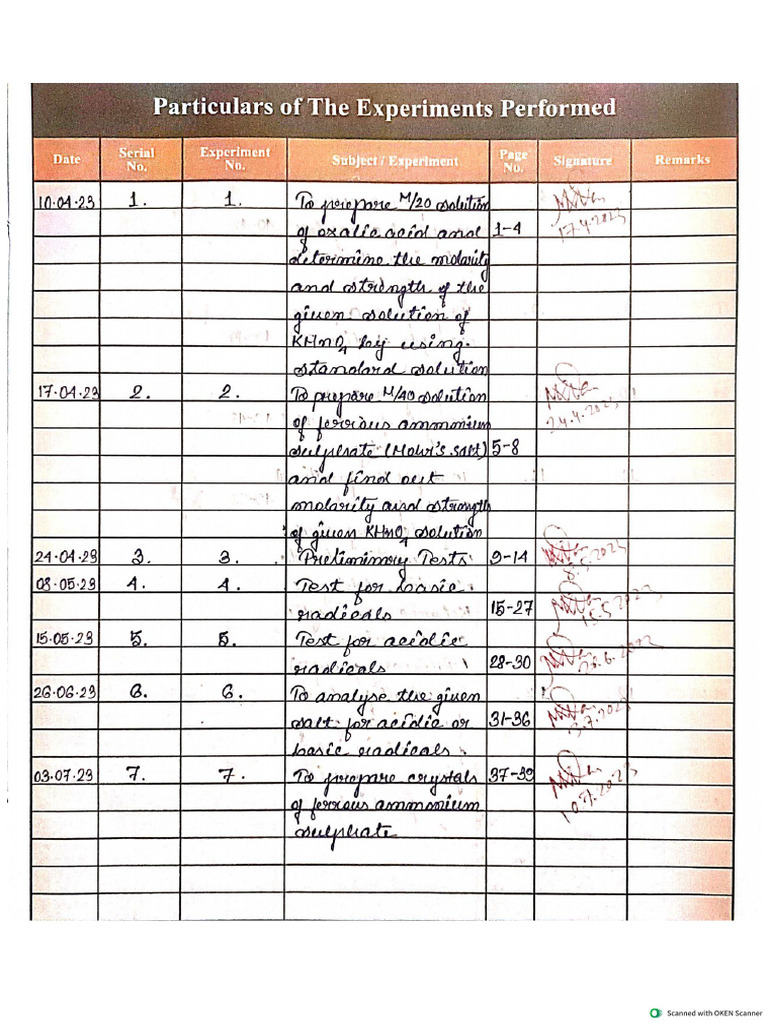 Particulars of The Experiments Performed
Date Serial No. Experiment No. Subject / Experiment Page No. Signature Remarks
10.04.23 1. 1. To prepare M/20 solution
of oxalic acid and 1-4 17.4.2023
determine the molarity
and strength of the
given solution of
KMnO4 by using
standard solution
17.04.23 2. 2. To prepare M/40 solution
of ferrious ammmnium 24.4.2023
sulphate (Mohr's salt) 5-8
and find out
molarity and strength
of given KMnO4 solution
24.04.23 3. 3. Prelimimory Tests 9-14 8.5.2023
08.05.23 4. 4. Test for basic
radicals 15-27 15.5.2023
15.05.23 5. 5. Test for acidic
radicals 28-30 6.2023
26.06.23 6. 6. To analyse the given
salt for acidic or 31-36 3.7.2023
basic radicals
03.07.23 7. 7. To prepare crystals 37-39
of ferrious ammmonium 10.7.2023
sulphate
Scanned with OKEN Scanner